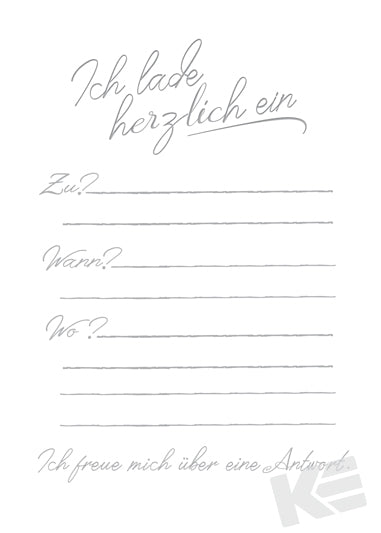 Ich lade
herzlich ein
Zu?
Wann?
Wo?
Ich freue mich über eine Antwort.
KE